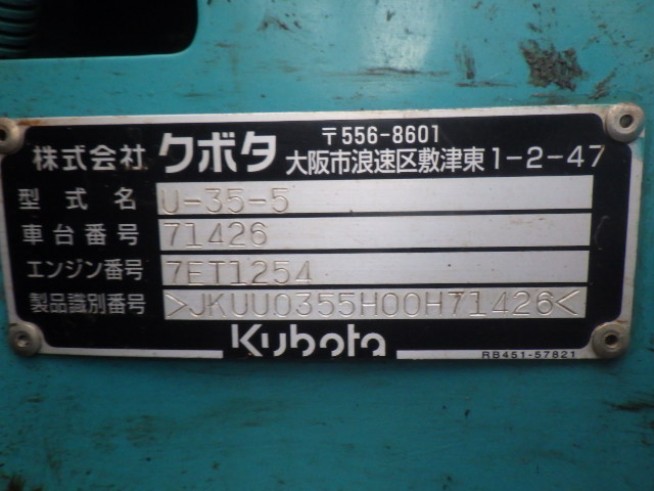 株式会社 クボタ 〒556-8601
大阪市浪速区敷津東1-2-47
型式名 U-35-5
車台番号 71426
エンジン番号 7ET1254
製品識別番号 >JKUU0355H00H71426<
Kubota
RB451-57821